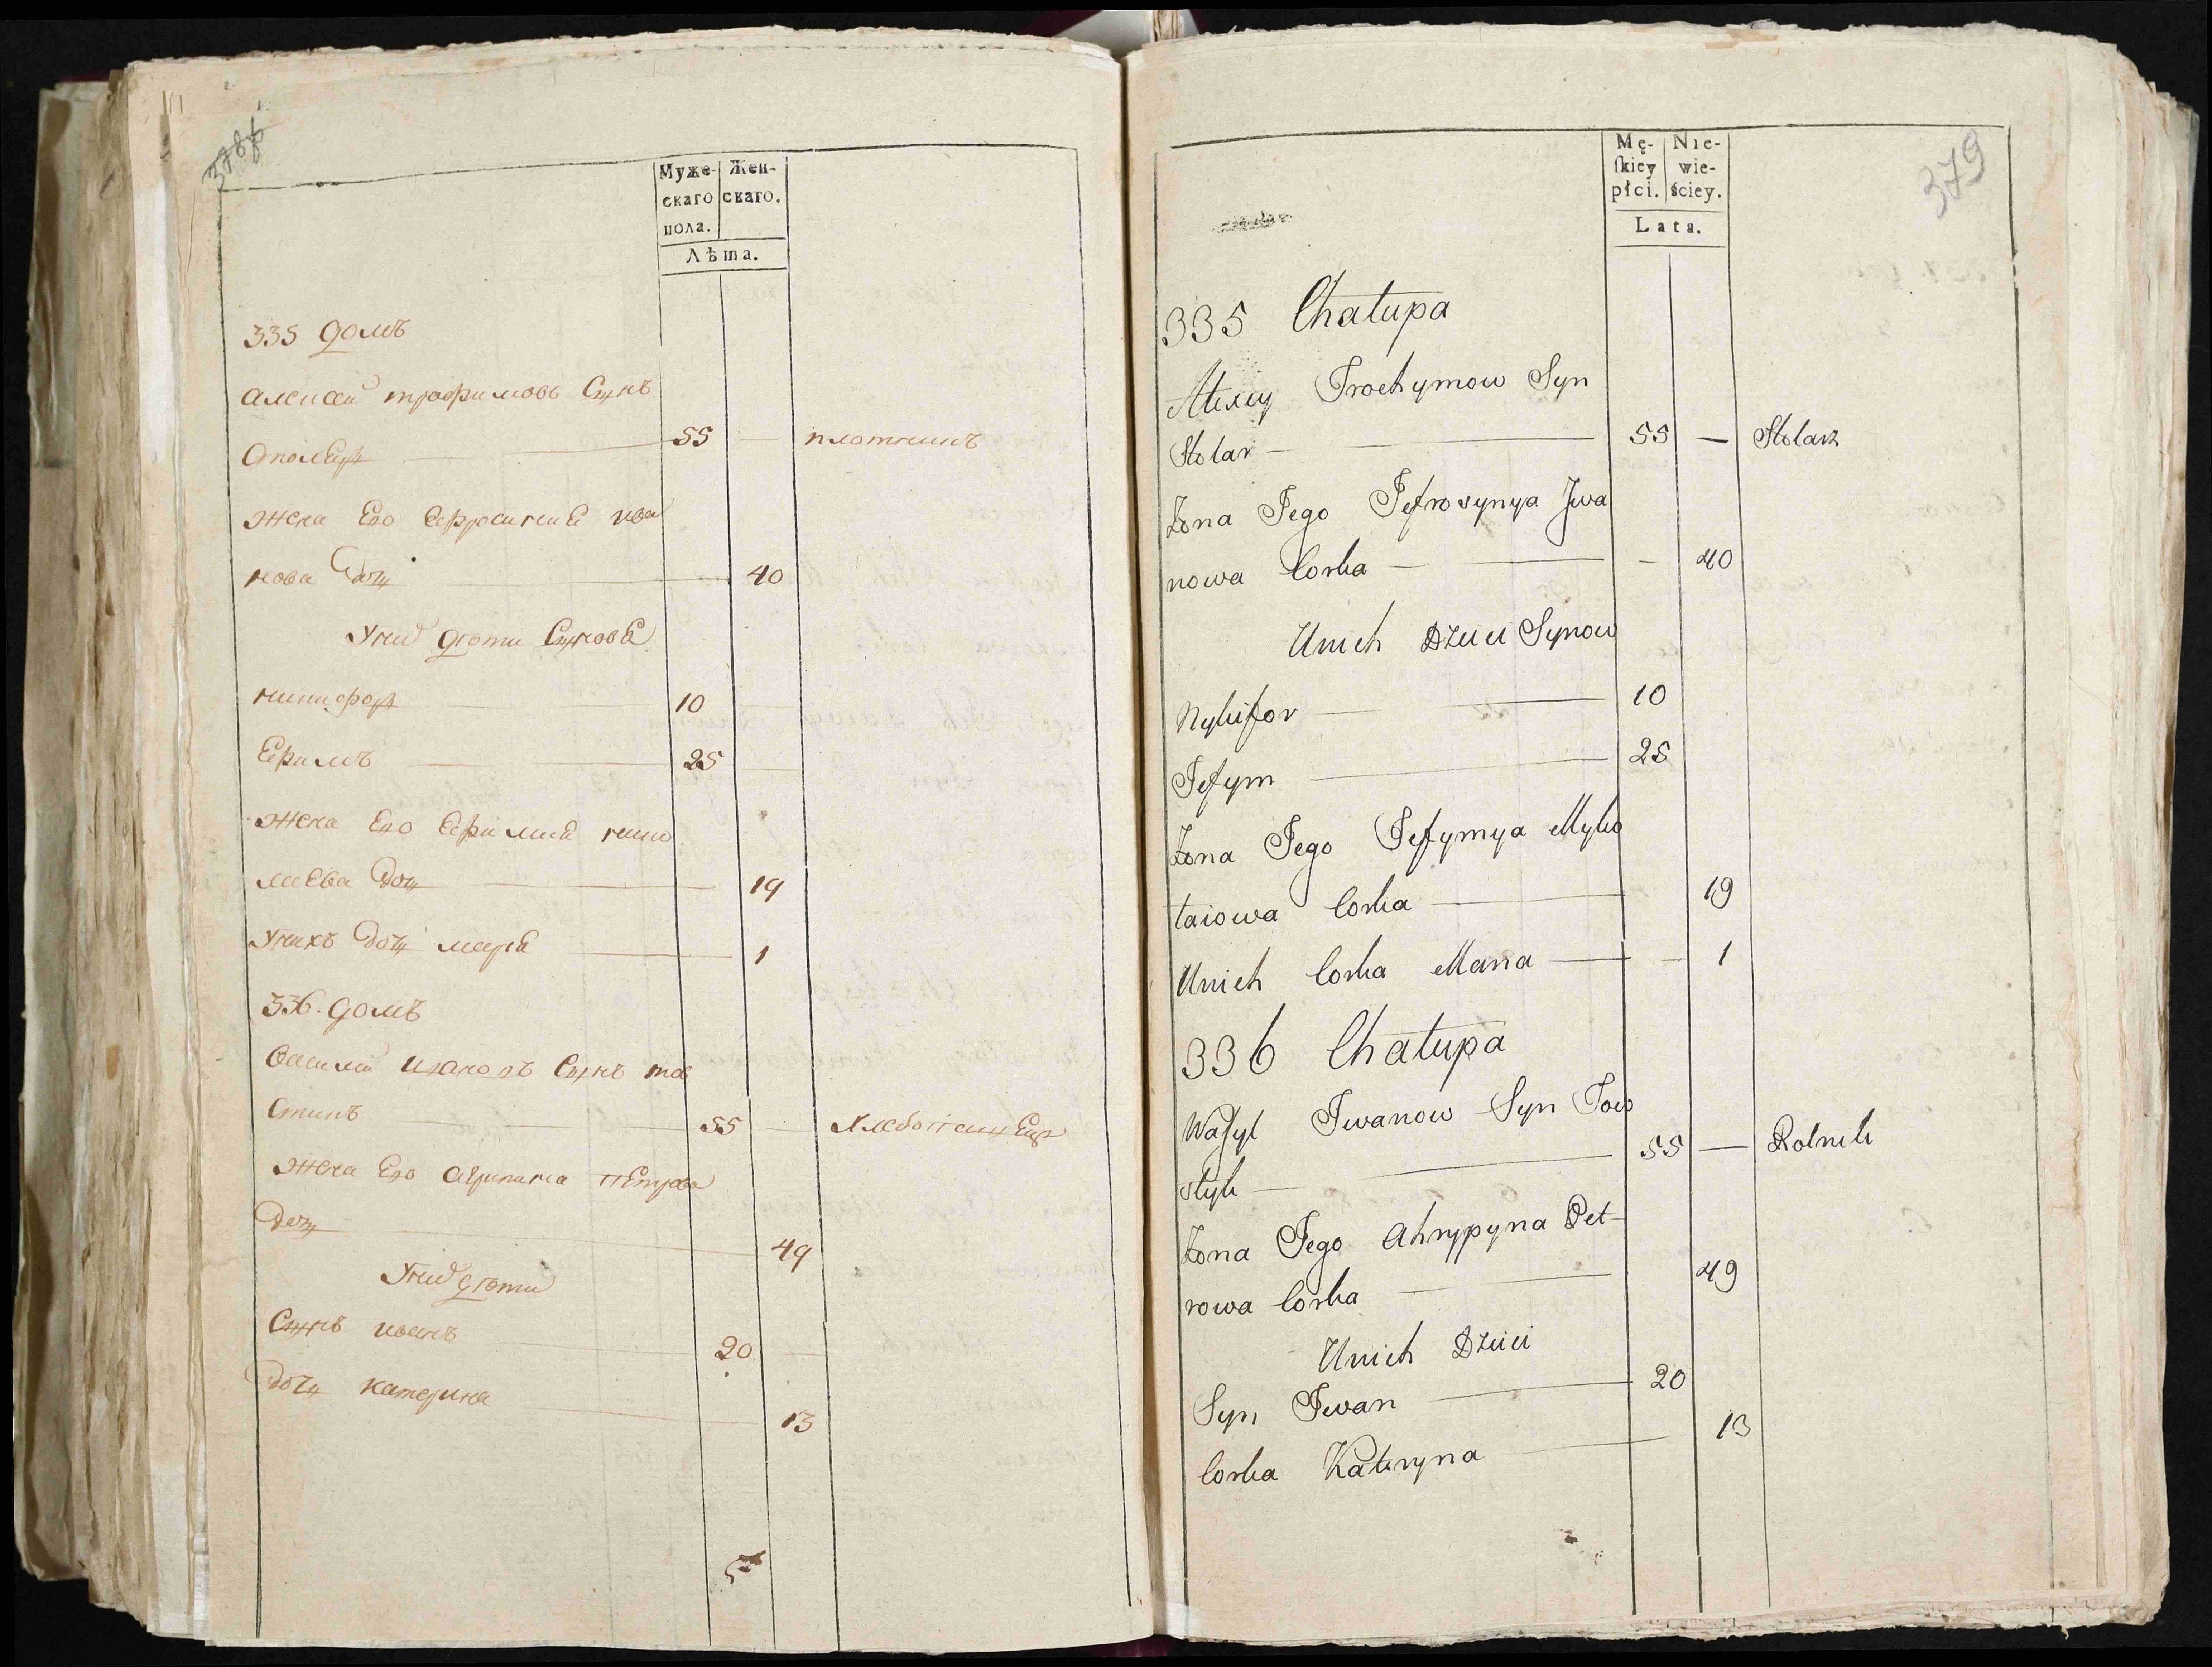 Муже-
скаго
пола.
Жен-
скаго.
Лѣта.
335 домъ
алексей трофимовъ Сынъ
Столяръ 55 — плотникъ
жена Его Ефросиния ива
нова дочъ 40
У них дети Сынове
никифоръ 10
Ефимъ 25
жена Его Ефимия нико
лаева дочъ 19
У них дочъ марья 1
336. домъ
Василей Ивановъ Сынъ тов
Стикъ 55 —
жена Его Агрипина Петрова
дочъ 49
У них дети
Сынъ иванъ 20 —
дочъ катерина 13
379
Mę-
ſkiey
płci.
Nie-
wie-
ściey.
Lata.
335 Chałupa
Alexey Trochymow Syn
Stolar — 55 — Stolarz
Żona Jego Jefrosynya Jwa
nowa Corka — - 40
Unich Dzieci Synow
Nykifor — 10
Jefym — 25
Żona Jego Jefymya Myko
łaiowa Corka — 19
Unich Corka Marya — - 1
336 Chałupa
Waſyl Jwanow Syn Tow
styk — 55 — Rolnik
Żona Jego Ahrypyna Pet-
rowa Corka — 49
Unich Dzieci
Syn Jwan — 20
Corka Kateryna 13